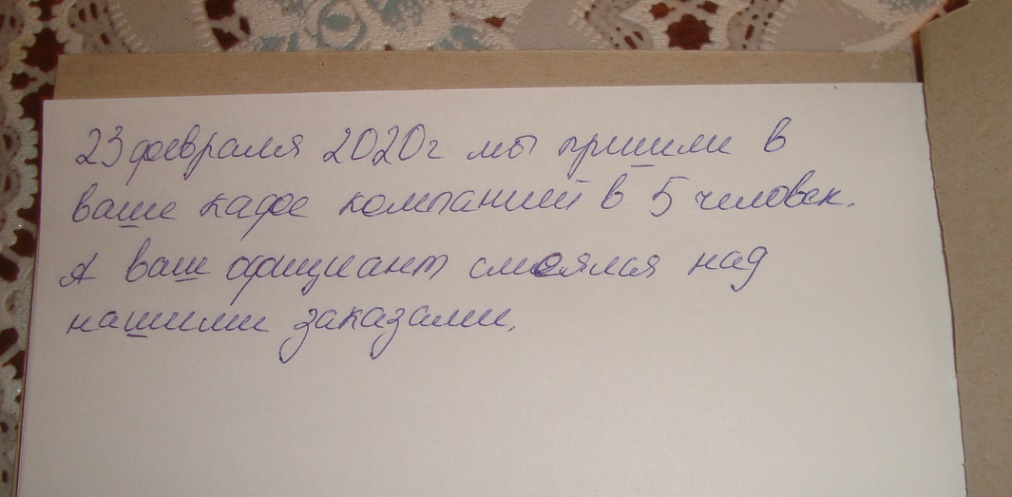 23 февраля 2020г мы пришли в
ваше кафе компаний в 5 человек.
А ваш официант смеялся над
нашими заказами.